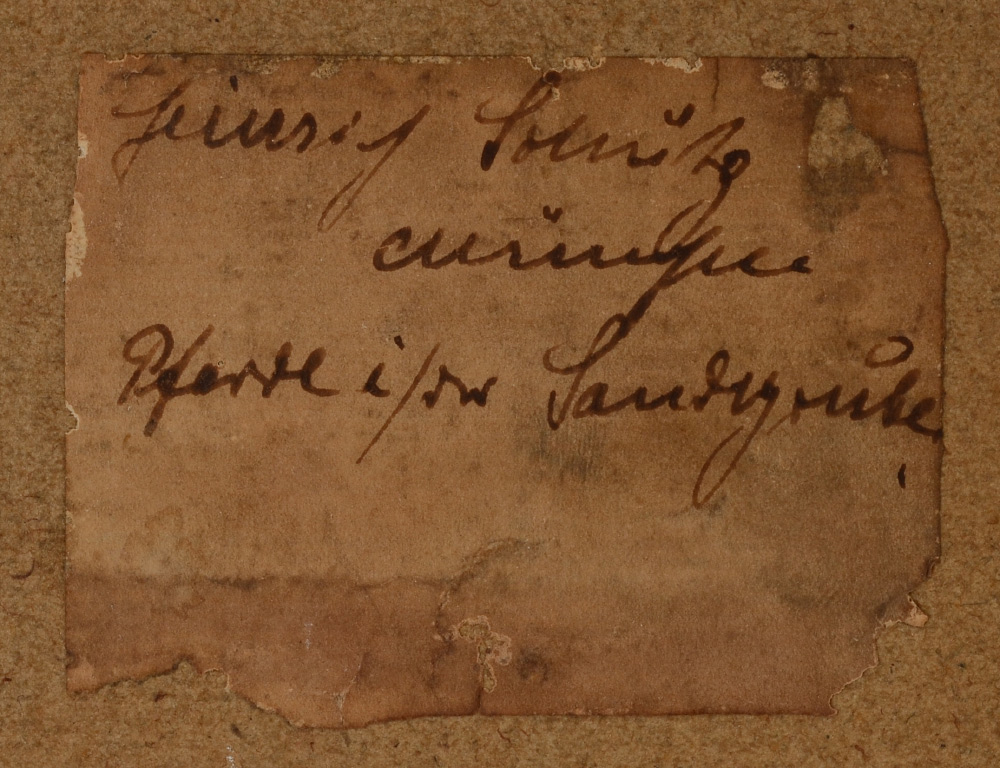 Heinrich Schütz
München
Pferde i/der Sandgrube.